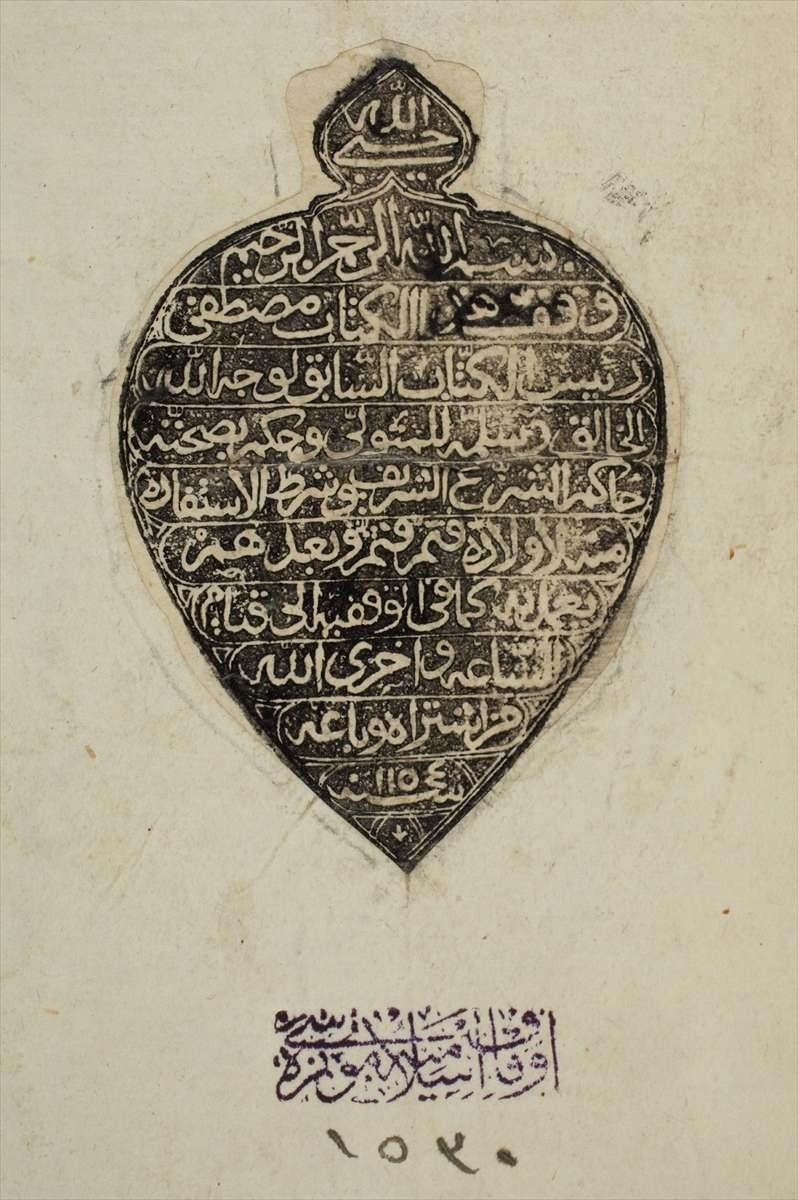 حسبي الله
بسم الله الرحمن الرحيم
وقف هذا الكتاب مصطفى
رئيس الكتّاب السابق لوجه الله
الخالق وسلمه للمتولّي وحكم بصحته
حاكم الشرع الشريف وشرط الاستفادة
لاولاده وبعدهم
يعمل به كما في الوقفيه الى قيام
الساعه واخزى الله
من اشتراه وباعه
سنه ١١٥٤
اوقاف اسلاميه موزه سى